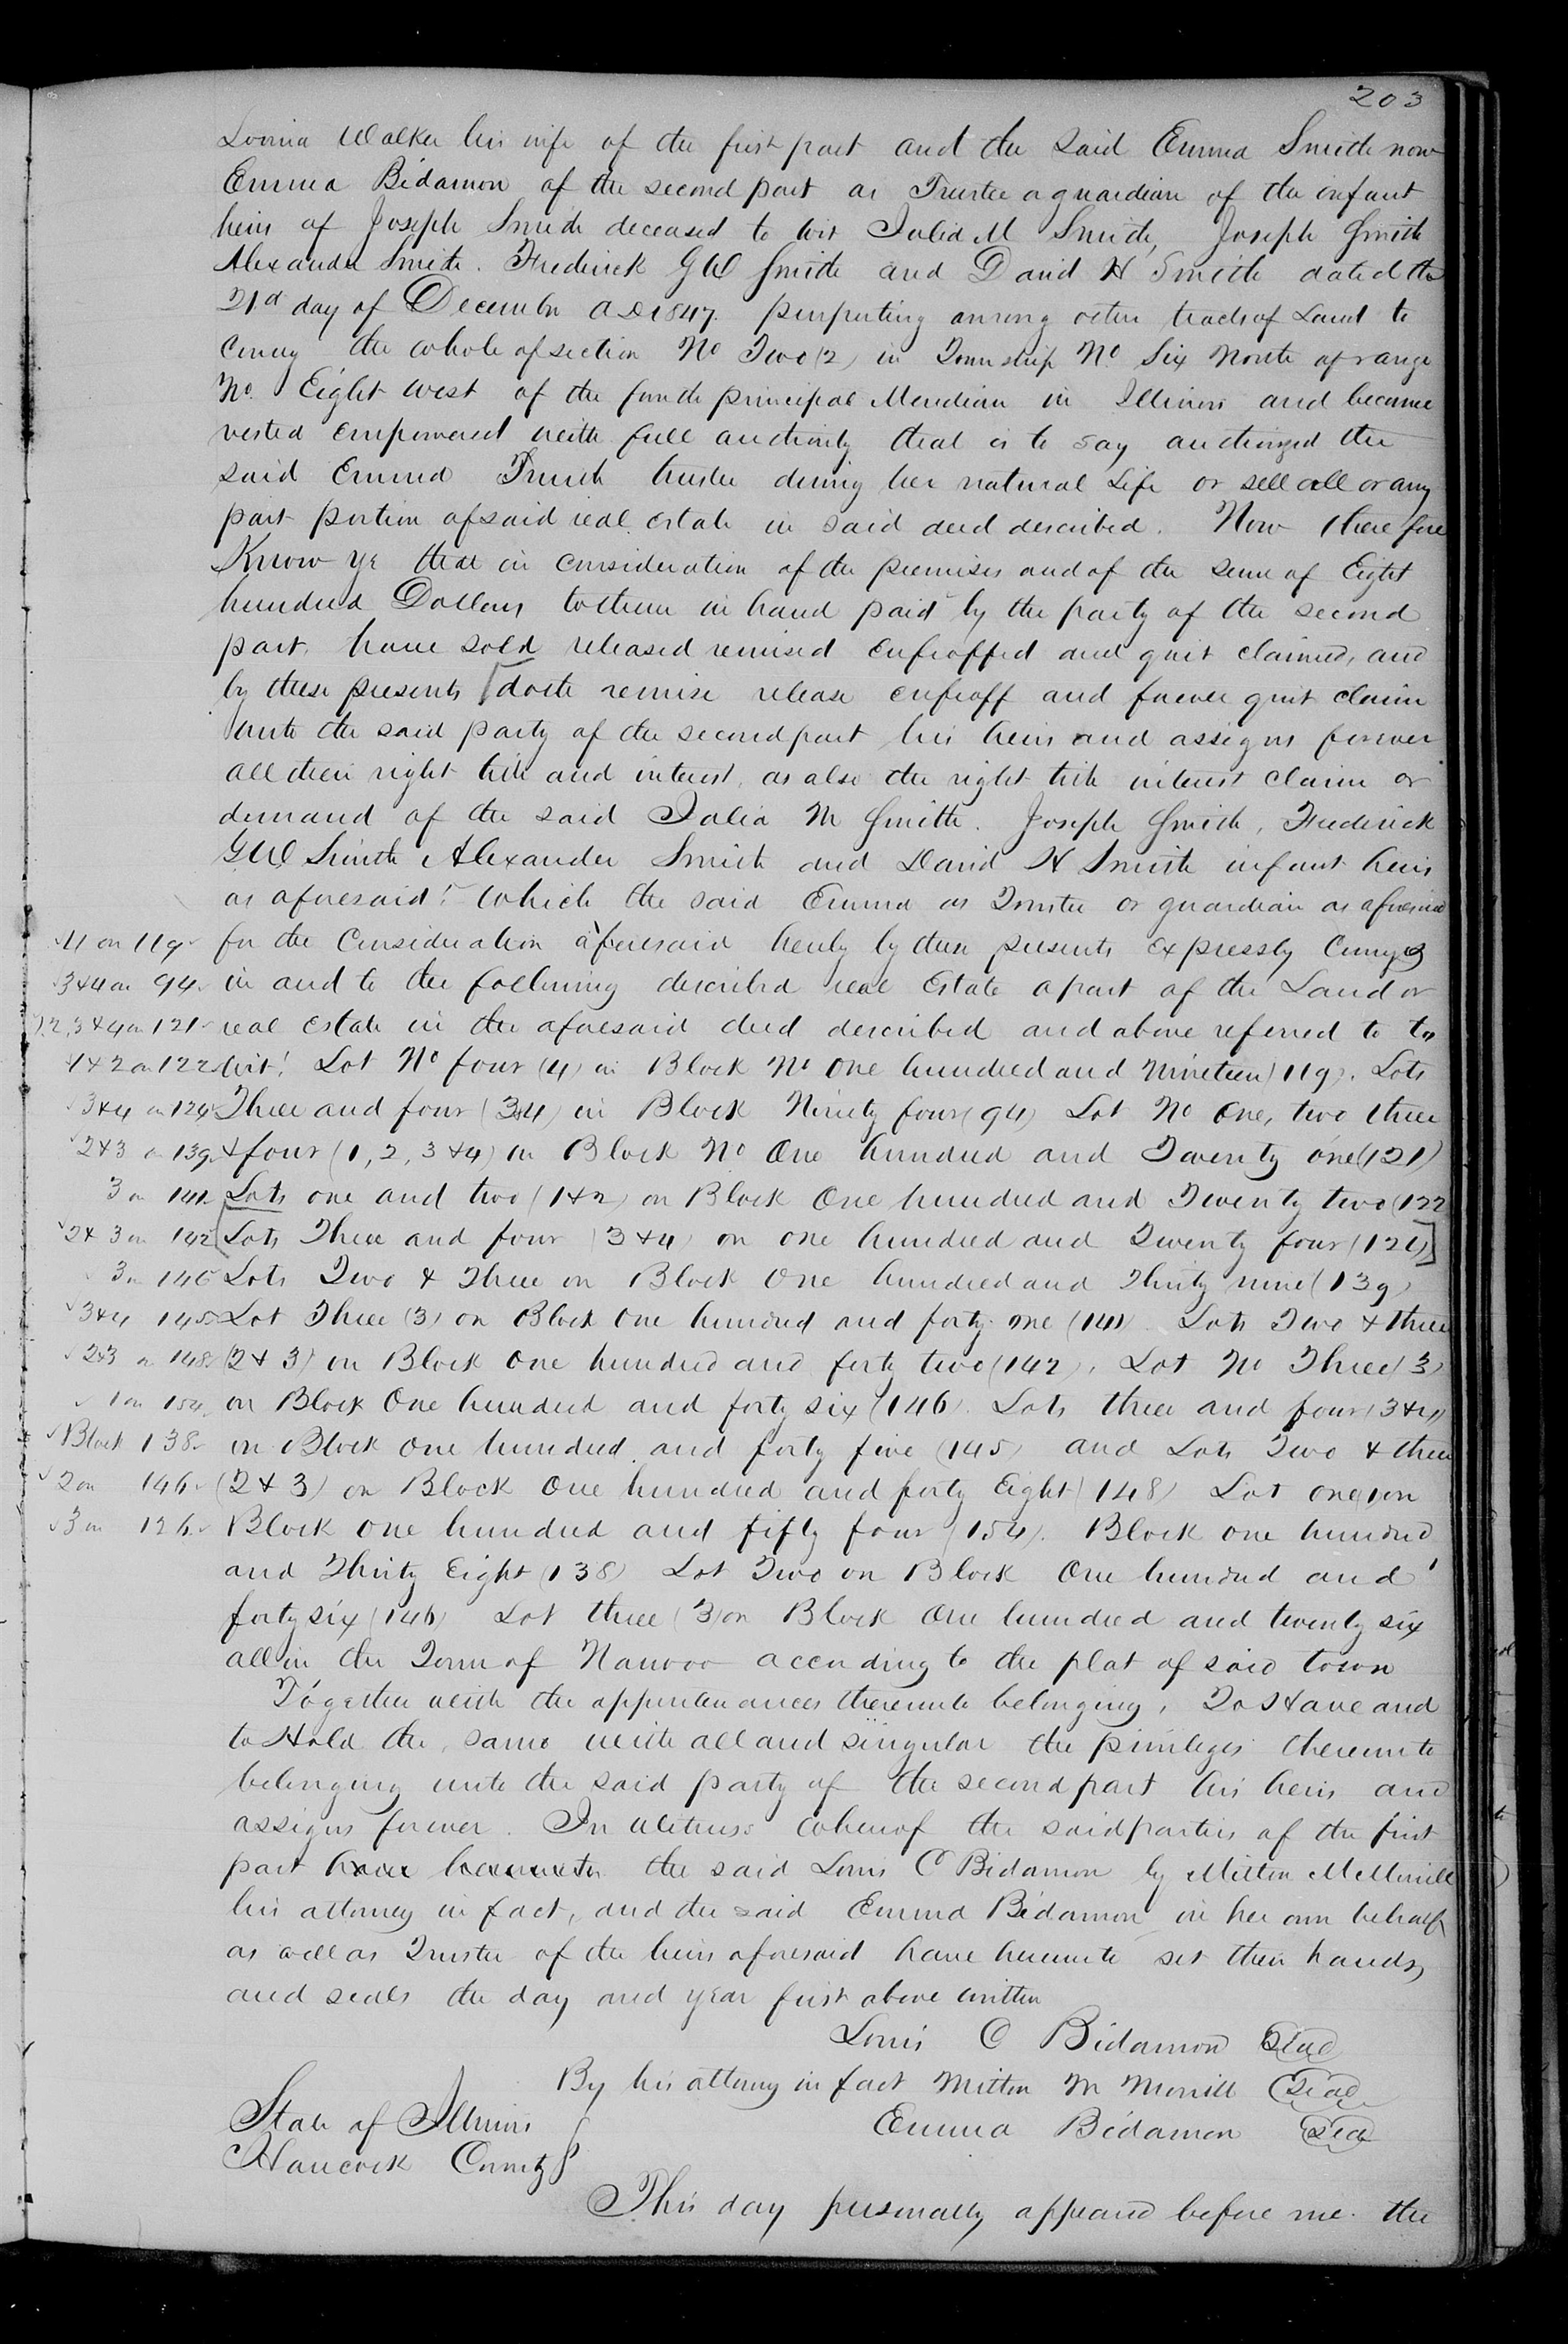 203
Lovina Walker his wife of the first part and the said Emma Smith now
Emma Bidamon of the second part as Trustee a guardian of the infant
heirs of Joseph Smith deceased to wit Julia M Smith, Joseph Smith
Alexander Smith. Frederick G W Smith and David H Smith dated the
21d day of December A D 1847. purporting among other tracts of Land to
Convey the whole of section No Two (2) in Township No. Six North of range
No. Eight west of the fourth principal Meridian in Illinois and became
vested empowered with full authority that is to say authorized the
said Emma Smith trustee during her natural Life or sell all or any
part portion of said real Estate in said deed described. Now therefore
Know ye that in consideration of the premises and of the sum of Eight
hundred Dollars to them in hand paid by the party of the second
part, have sold released remised enfeoffed and quit claimed, and
by these presents doth remise release enfeoff and forever quit claim
unto the said party of the second part his heirs and assigns forever
all their right title and interest, as also the right title interest claim or
demand of the said Julia M Smith. Joseph Smith, Frederick
G W Smith Alexander Smith and David H Smith infant heirs
as aforesaid! which the said Emma as Trustee or guardian as aforesaid
4 on 119 for the Consideration aforesaid hereby by these presents expressly Conveys
3&4 on 94 in and to the following described real Estate a part of the Land or
1,2,3&4 on 121 real estate in the aforesaid deed described and above referred to to
1&2 on 122 wit! Lot No four (4) in Block No One hundred and Nineteen (119). Lots
3&4 on 124 Three and four (3&4) in Block Ninety four (94) Lot No One, two three
2&3 on 139 & four (1,2,3&4) in Block No One hundred and Twenty one (121)
3 on 141 Lots one and two (1&2) on Block One hundred and Twenty two (122
2&3 on 142 [Lots Three and four (3&4) on one hundred and Twenty four (124)]
3 on 146 Lots Two & Three on Block One hundred and Thirty nine (139)
3&4 145 Lot Three (3) on Block One hundred and forty one (141). Lots Two & three
2&3 on 148 (2&3) on Block One hundred and forty two (142). Lot No Three (3)
1 on 154 on Block One hundred and forty six (146). Lots three and four (3&4)
Block 138 on Block one hundred and forty five (145) and Lots Two & three
2 on 146 (2&3) on Block One hundred and forty Eight (148) Lot one (1) on
3 on 126 Block one hundred and fifty four (154). Block one hundred
and Thirty Eight (138) Lot Two on Block One hundred and
forty six (146) Lot three (3) on Block One hundred and twenty six
all in the Town of Nauvoo according to the plat of said town
Together with the appurtenances thereunto belonging. To Have and
to Hold the same with all and singular the privileges thereunto
belonging unto the said party of the second part his heirs and
assigns forever. In witness whereof the said parties of the first
part have hereunto the said Louis C Bidamon by Milton M Morrill
his attorney in fact, and the said Emma Bidamon in her own behalf
as well as Trustee of the heirs aforesaid have hereunto set their hands,
and seals the day and year first above written
Louis C Bidamon Seal
By his attorney in fact Milton M Morrill Seal
State of Illinois
Emma Bidamon Seal
Hancock County
This day personally appeared before me. the